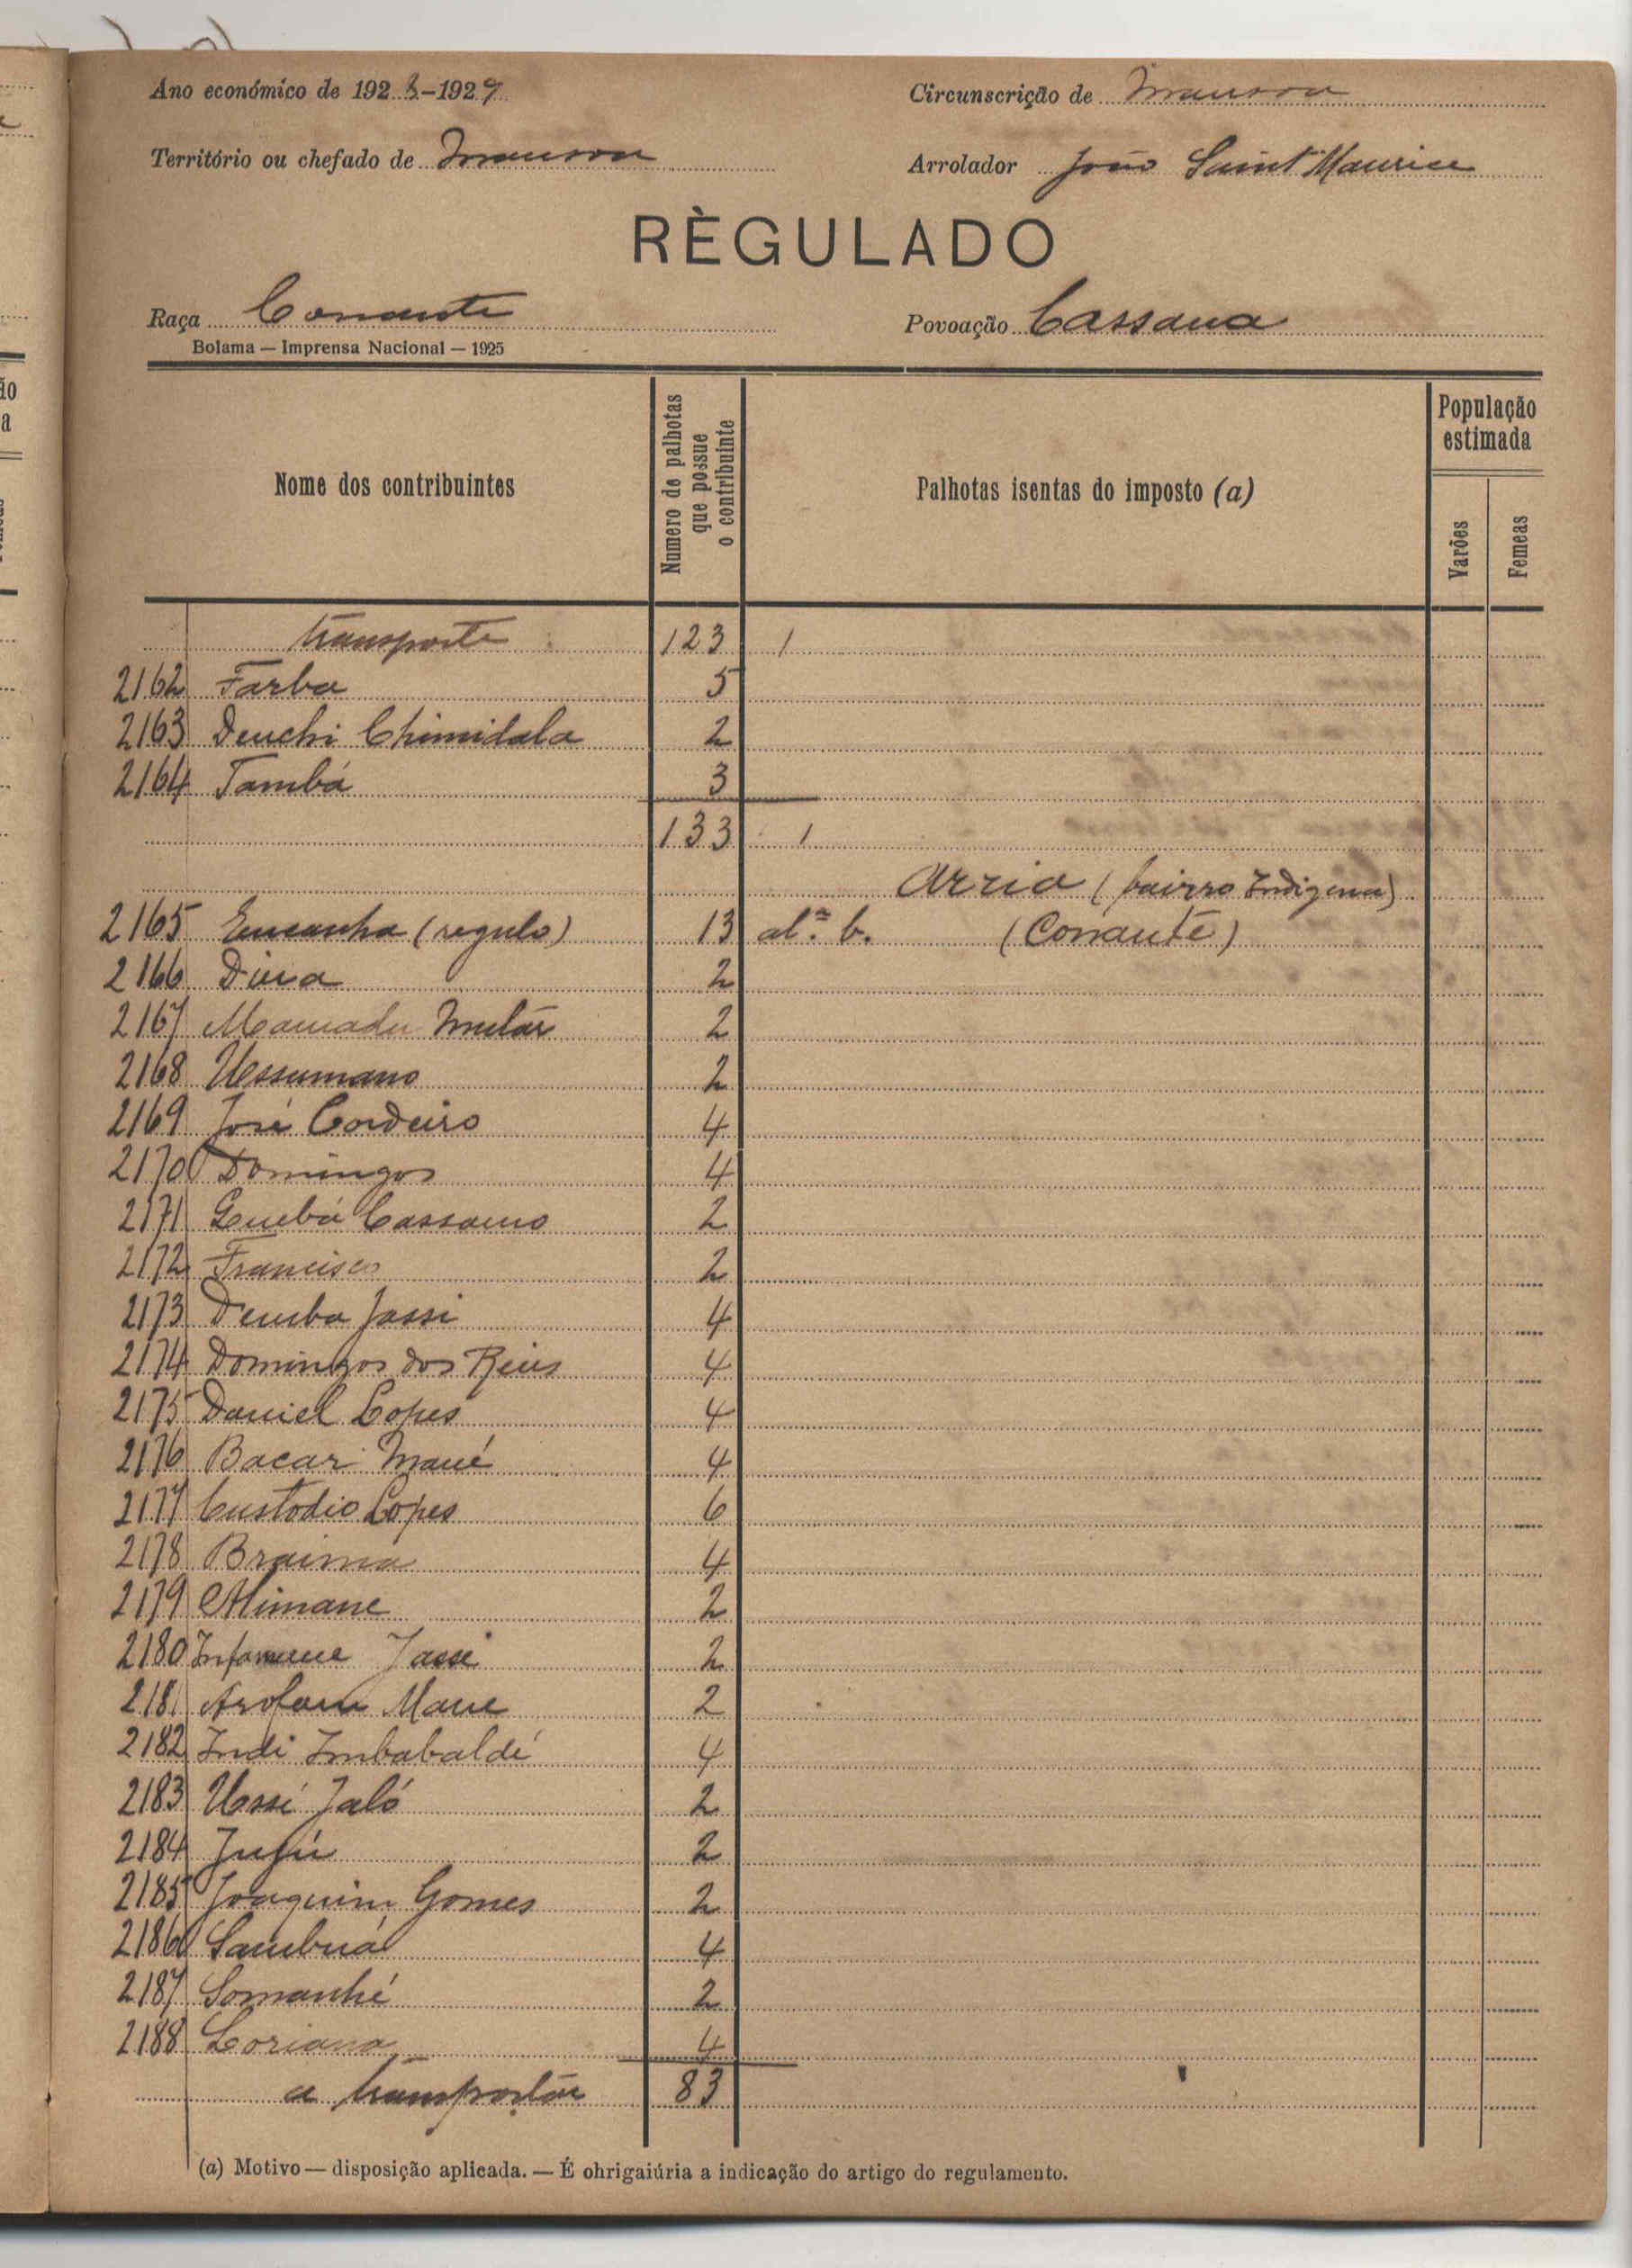 Ano económico de 1928-1929
Circunscrição de Mansoa
Território ou chefado de Mansoa
Arrolador João Saint Maurice
RÈGULADO
Raça Conante
Povoação Cassana
Bolama — Imprensa Nacional — 1925
Nome dos contribuintes
Numero de palhotas que possue o contribuinte
Palhotas isentas do imposto (a)
População estimada
Varões
Femeas
transporte 123 1
2162 Farba 5
2163 Deuchi Chimidala 2
2164 Tambá 3
133 1
Arria (bairro Indigena)
2165 Encanha (regulo) 13 alª b. (Conante)
2166 2
2167 Mamadu 2
2168 Ussumano 2
2169 José Cordeiro 4
2170 Domingos 4
2171 Quebá Cassamo 2
2172 Francisco 2
2173 Demba Jassi 4
2174 Domingos dos Reius 4
2175 Daniel Lopes 4
2176 Bacar Mané 4
2177 Custodio Lopes 6
2178 Braima 4
2179 Alimane 2
2180 Infamene Jassi 2
2181 Arofam Mane 2
2182 Indi Imbabaldé 4
2183 Ussi Jaló 2
2184 Jufú 2
2185 Joaquim Gomes 2
2186 Sambuá 4
2187 Somanhé 2
2188 Loriana 4
a transportar 83
(a) Motivo — disposição aplicada. — É ohrigaiúria a indicação do artigo do regulamento.